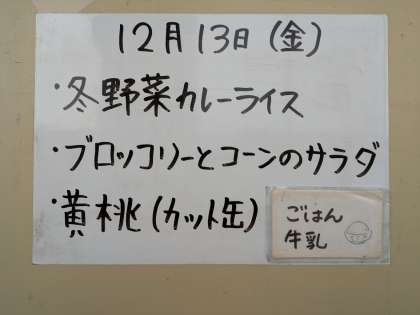 12月13日(金)
・冬野菜カレーライス
・ブロッコリーとコーンのサラダ
・黄桃(カット缶)
ごはん
牛乳